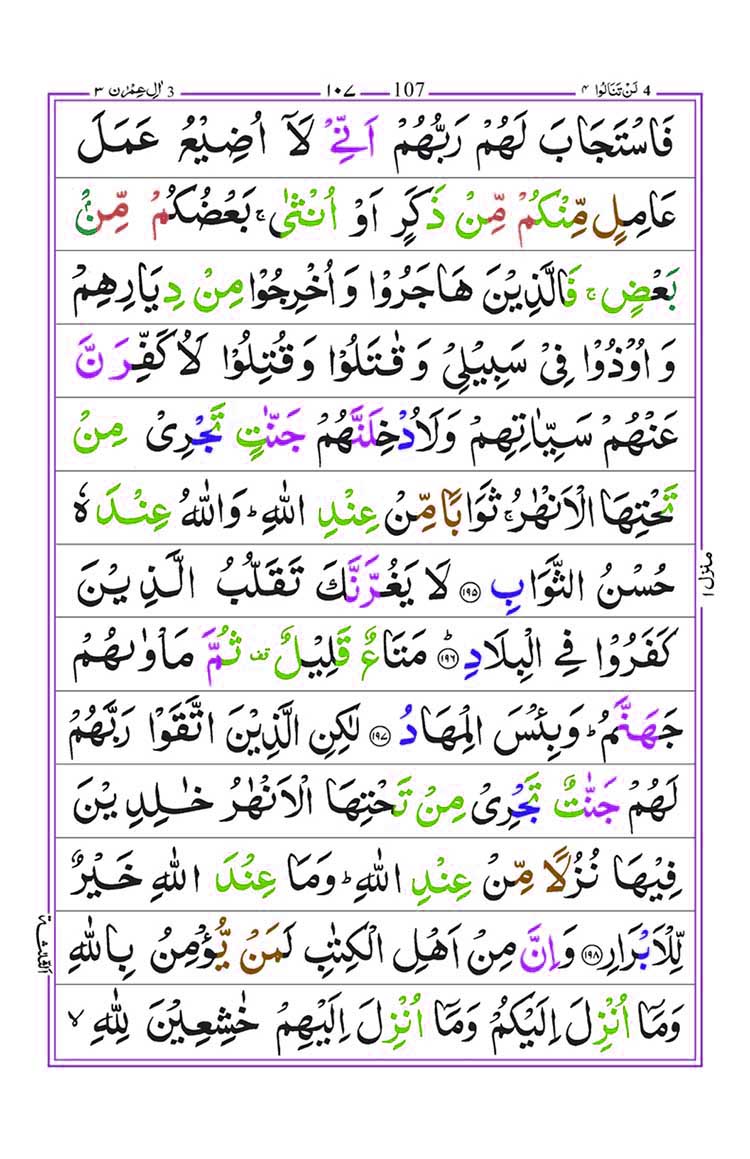 3 اٰلِ عِمْرٰن ٣ ١٠٧ 107 4 لَنْ تَنَالُوا ٤
فَاسْتَجَابَ لَهُمْ رَبُّهُمْ اَنِّیْ لَاۤ اُضِیْعُ عَمَلَ
عَامِلٍ مِّنْكُمْ مِّنْ ذَكَرٍ اَوْ اُنْثٰی ۚ بَعْضُكُمْ مِّنْۢ
بَعْضٍ ۚ فَالَّذِیْنَ هَاجَرُوْا وَ اُخْرِجُوْا مِنْ دِیَارِهِمْ
وَ اُوْذُوْا فِیْ سَبِیْلِیْ وَ قٰتَلُوْا وَ قُتِلُوْا لَاُكَفِّرَنَّ
عَنْهُمْ سَیِّاٰتِهِمْ وَلَاُدْخِلَنَّهُمْ جَنّٰتٍ تَجْرِیْ مِنْ
تَحْتِهَا الْاَنْهٰرُ ۚ ثَوَابًا مِّنْ عِنْدِ اللّٰهِ ؕ وَاللّٰهُ عِنْدَهٗ
حُسْنُ الثَّوَابِ ﴿۱۹۵﴾ لَا یَغُرَّنَّكَ تَقَلُّبُ الَّذِیْنَ
كَفَرُوْا فِی الْبِلَادِ ﴿۱۹۶﴾ؕ مَتَاعٌ قَلِیْلٌ ۫ ثُمَّ مَاْوٰىهُمْ
جَهَنَّمُ ؕ وَبِئْسَ الْمِهَادُ ﴿۱۹۷﴾ لٰكِنِ الَّذِیْنَ اتَّقَوْا رَبَّهُمْ
لَهُمْ جَنّٰتٌ تَجْرِیْ مِنْ تَحْتِهَا الْاَنْهٰرُ خٰلِدِیْنَ
فِیْهَا نُزُلًا مِّنْ عِنْدِ اللّٰهِ ؕ وَمَا عِنْدَ اللّٰهِ خَیْرٌ
لِّلْاَبْرَارِ ﴿۱۹۸﴾ وَاِنَّ مِنْ اَهْلِ الْكِتٰبِ لَمَنْ یُّؤْمِنُ بِاللّٰهِ
وَمَاۤ اُنْزِلَ اِلَیْكُمْ وَمَاۤ اُنْزِلَ اِلَیْهِمْ خٰشِعِیْنَ لِلّٰهِ ۙ
منزل ١
الثلثة